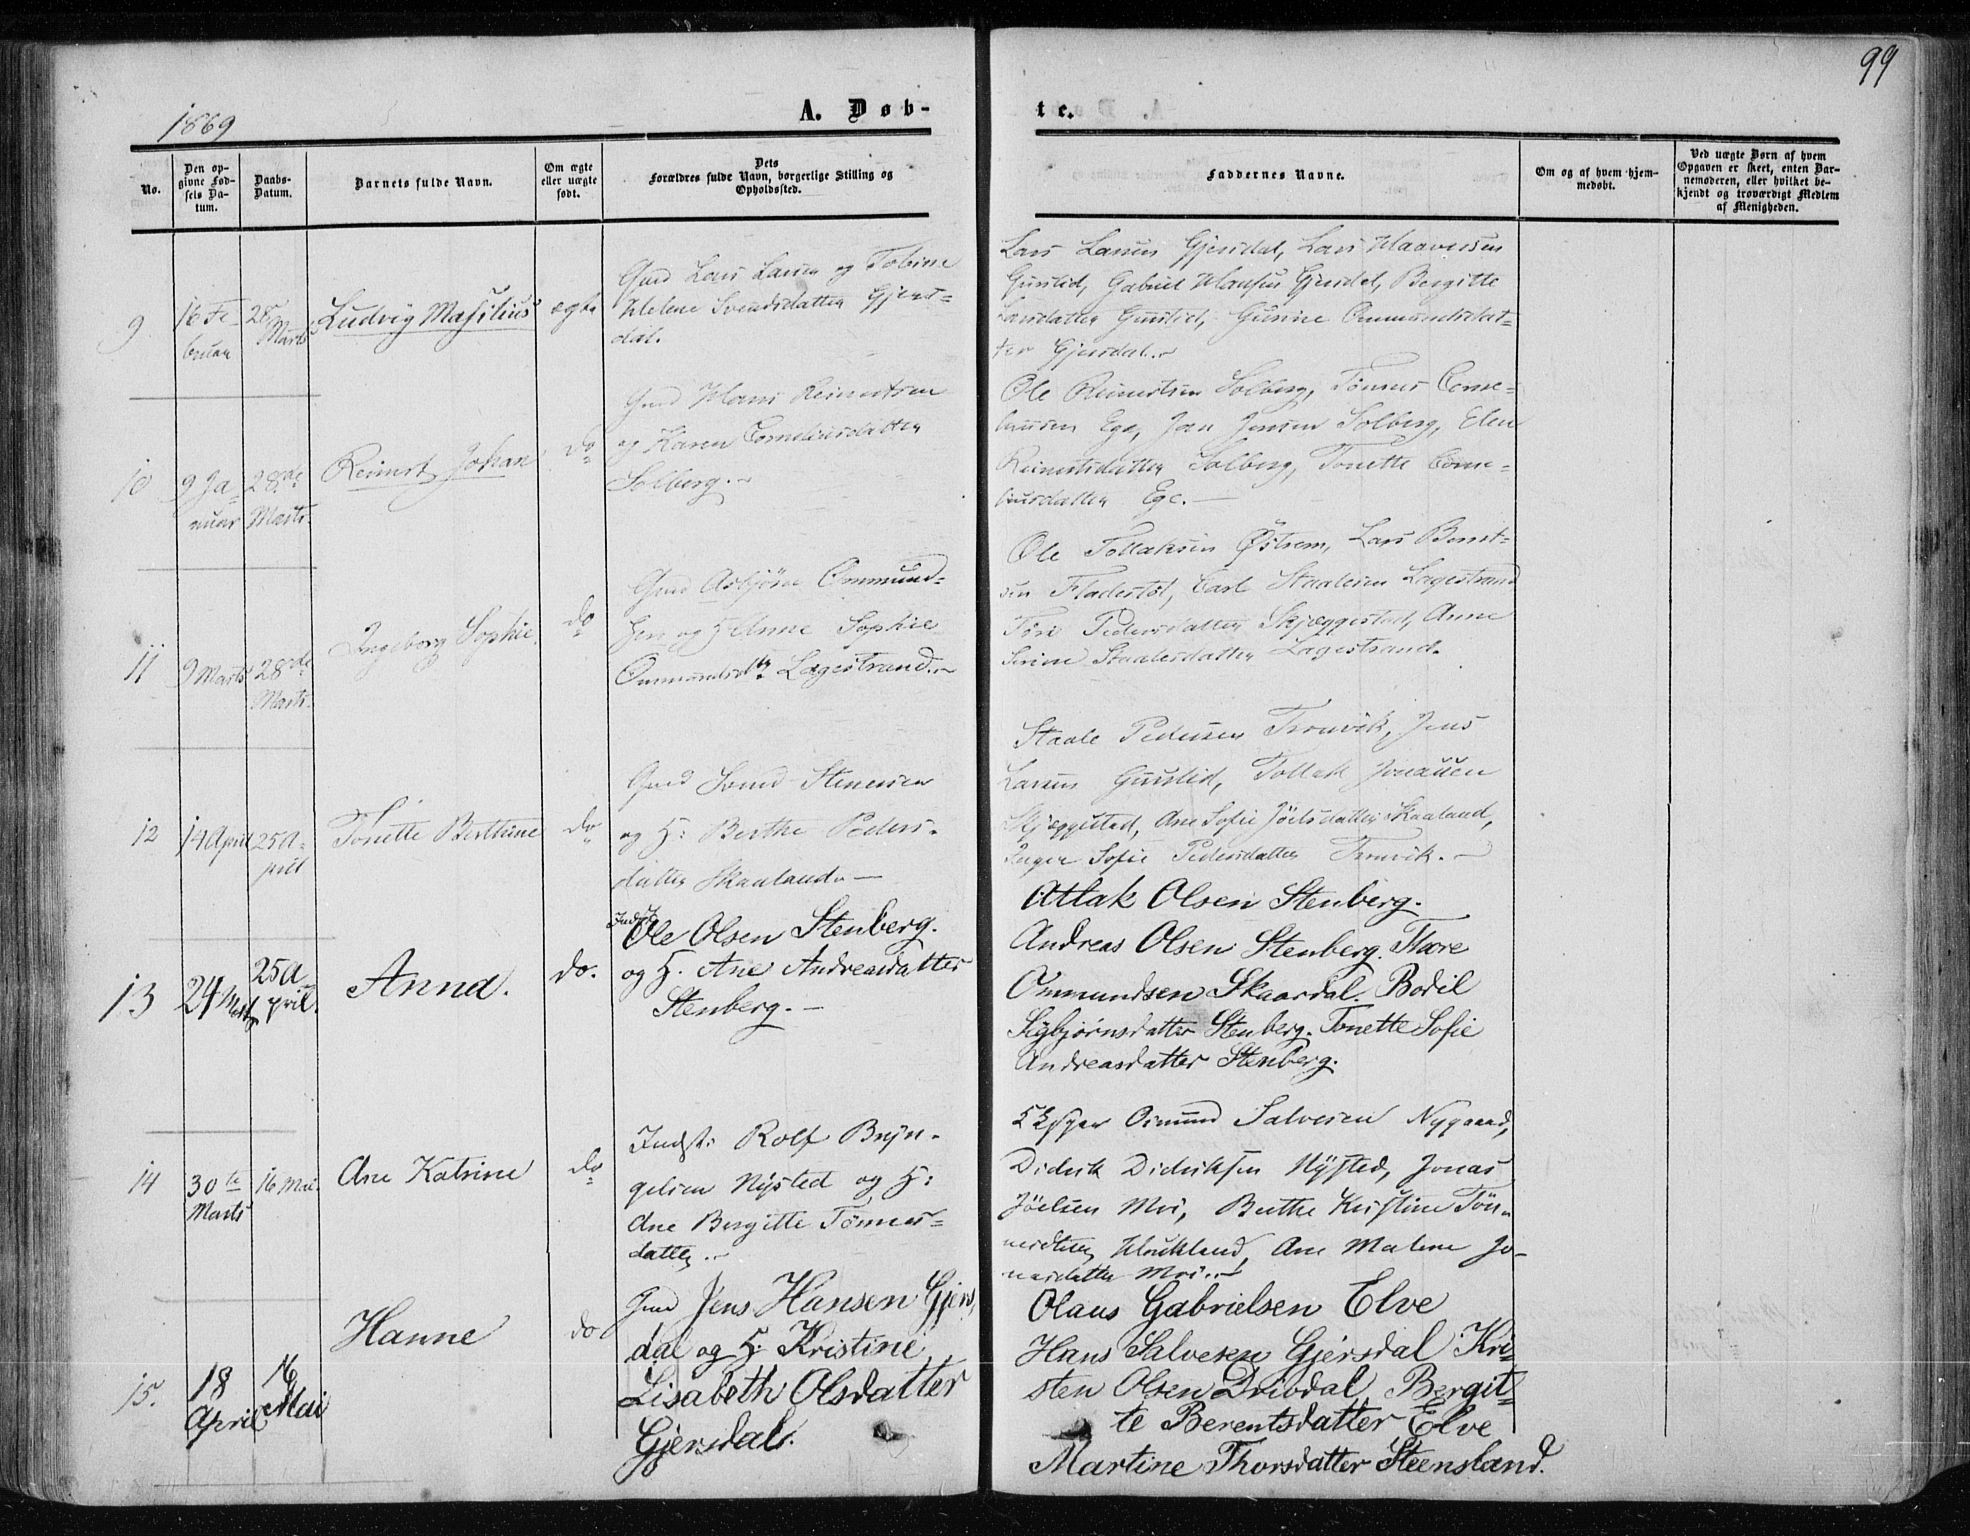 99
1869
A. Døb-
te.
No.
Den op-
givne Fød-
sels Da-
tum.
Daabs-
Datum.
Barnets fulde Navn.
Om ægte
eller uægte
født.
Dets
Forældres fulde Navn, borgerlige Stilling og
Opholdssted.
Faddernes Navne.
Om og af hvem hjem-
medøbt.
Ved uægte Børn af hvem
Opgaven er skeet, enten Bar-
nemoderen, eller hvilket be-
kjendt og troværdigt Medlem
af Menigheden.
9
16 Fe-
bruar
28
Marts
Ludvig Masilius
ægte
Gmd Lars Larsen og Tobine
Helene Svendsdatter Gjers-
dal.
Lars Larsen Gjersdal, Lars Haaversen
Guulid, Gabriel Hansen Gjersdal, Bergitte
Larsdatter Guulid, Gunine Ommundsdat-
ter Gjersdal.
10
9 Ja-
nuar
28de
Marts.
Reinert Johan
do
Gmd Hans Reinertsen
og Karen Corneliusdatter
Solberg.
Ole Reinertsen Solberg, Tønnes Corne-
liussen Ege, Jan Jensen Solberg, Elen
Reinertsdatter Solberg, Tonette Corne-
liusdatter Ege.
11
9 Marts
28de
Marts.
Ingeborg Sophie.
do
Gmd Asbjørn Ommund-
sen og H Anne Sophie
Ommundsdtr Lagestrand.
Ole Tollaksen Østrem, Lars Bernt-
sen Fladestøl, Carl Staalesen Lagestrand
Tøri Pedersdatter Skjæggestad, Anne
Serine Staalesdatter Lagestrand.
12
14 April
25 A-
pril
Tonette Berthine
do
Gmd Svend Stenersen
og H: Berthe Peders-
datter Skaaland.
Staale Pedersen Tronvik, Jens
Larsen Guulid, Tollak Jonassen
Skjæggestad, Ane Sofie Joelsdatter Skaaland,
Inger Sofie Pedersdatter Tronvik.
13
24 Marts
25 A-
pril.
Anna.
do.
Indst:
Ole Olsen Stenberg.
og H. Ane Andreasdatter
Stenberg.
Atlak Olsen Stenberg.
Andreas Olsen Stenberg. Thore
Ommundsen Skaardal. Bodil
Sigbjørnsdatter Stenberg. Tonette Sofie
Andreasdatter Stenberg.
14
30te
Marts
16 Mai
Ane Katrine
do
Indst: Rolf Bryn-
gelsen Nysted og H:
Ane Bergitte Tønnes-
datter.
Osmund Salvesen Nygaard,
Didrik Didriksen Nysted, Jonas
Joelsen Moi, Berthe Kristine Tøn-
nesdtter Houkland, Ane Malene Jo-
nasdatter Moi.
15.
18
April
16
Mai
Hanne
do
Gmd Jens Hansen Gjers,
dal og H: Kristine
Lisabeth Olsdatter
Gjersdal.
Olaus Gabrielsen Elve
Hans Salvesen Gjersdal Kri-
sten Olsen Drivdal, Bergit-
te Berentsdatter Elve
Martine Thorsdatter Steensland.